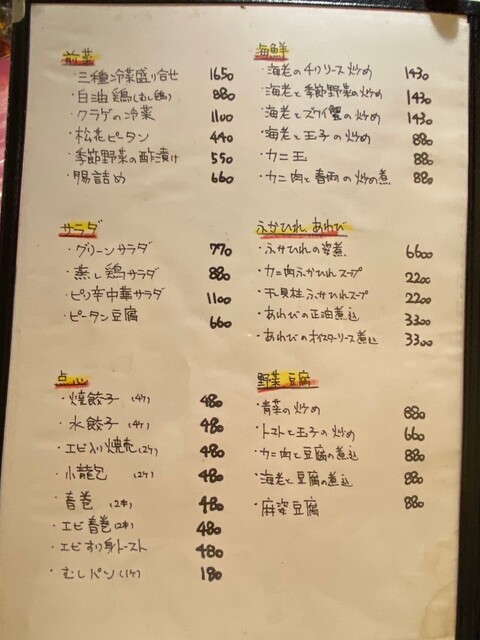 前菜
・三種冷菜盛り合せ 1650
・白油鶏(むし鶏) 880
・クラゲの冷菜 1100
・松花ピータン 440
・季節野菜の酢漬け 550
・腸詰め 660
サラダ
・グリーンサラダ 770
・蒸し鶏サラダ 880
・ピリ辛中華サラダ 1100
・ピータン豆腐 660
点心
・焼餃子 (4ケ) 480
・水餃子 (4ケ) 480
・エビ入り焼売(2ケ) 480
・小龍包 (2ケ) 480
・春巻 (2本) 480
・エビ春巻(2本) 480
・エビすり身トースト 480
・むしパン(1ケ) 180
海鮮
・海老のチリソース炒め 1430
・海老と季節野菜の炒め 1430
・海老とズワイ蟹の炒め 1430
・海老と玉子の炒め 880
・カニ玉 880
・カニ肉と春雨の炒め煮 880
ふかひれ あわび
・ふかひれの姿煮 6600
・カニ肉ふかひれスープ 2200
・干貝柱ふかひれスープ 2200
・あわびの正油煮込 3300
・あわびのオイスターソース煮込 3300
野菜 豆腐
・青菜の炒め 880
・トマトと玉子の炒め 660
・カニ肉と豆腐の煮込 880
・海老と豆腐の煮込 880
・麻婆豆腐 880